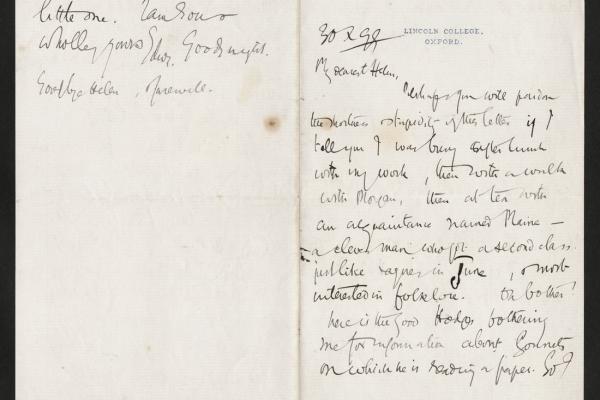 little one. I am now &
wholly yours Edwy. Goodnight.
Goodbye Helen, & farewell.
30 X 99
LINCOLN COLLEGE,
OXFORD.
My dearest Helen,
Perhaps you will pardon
the shortness & stupidity of this letter if I
tell you I was busy after lunch
with my work, then with a walk
with Morgan, then at tea with
an acquaintance named Maine —
a clever man who got a second class
just like in June, & most
interested in folklore. Oh bother!
here is the good Hodge bothering
me for information about Sonnets
on which he is reading a paper. So I